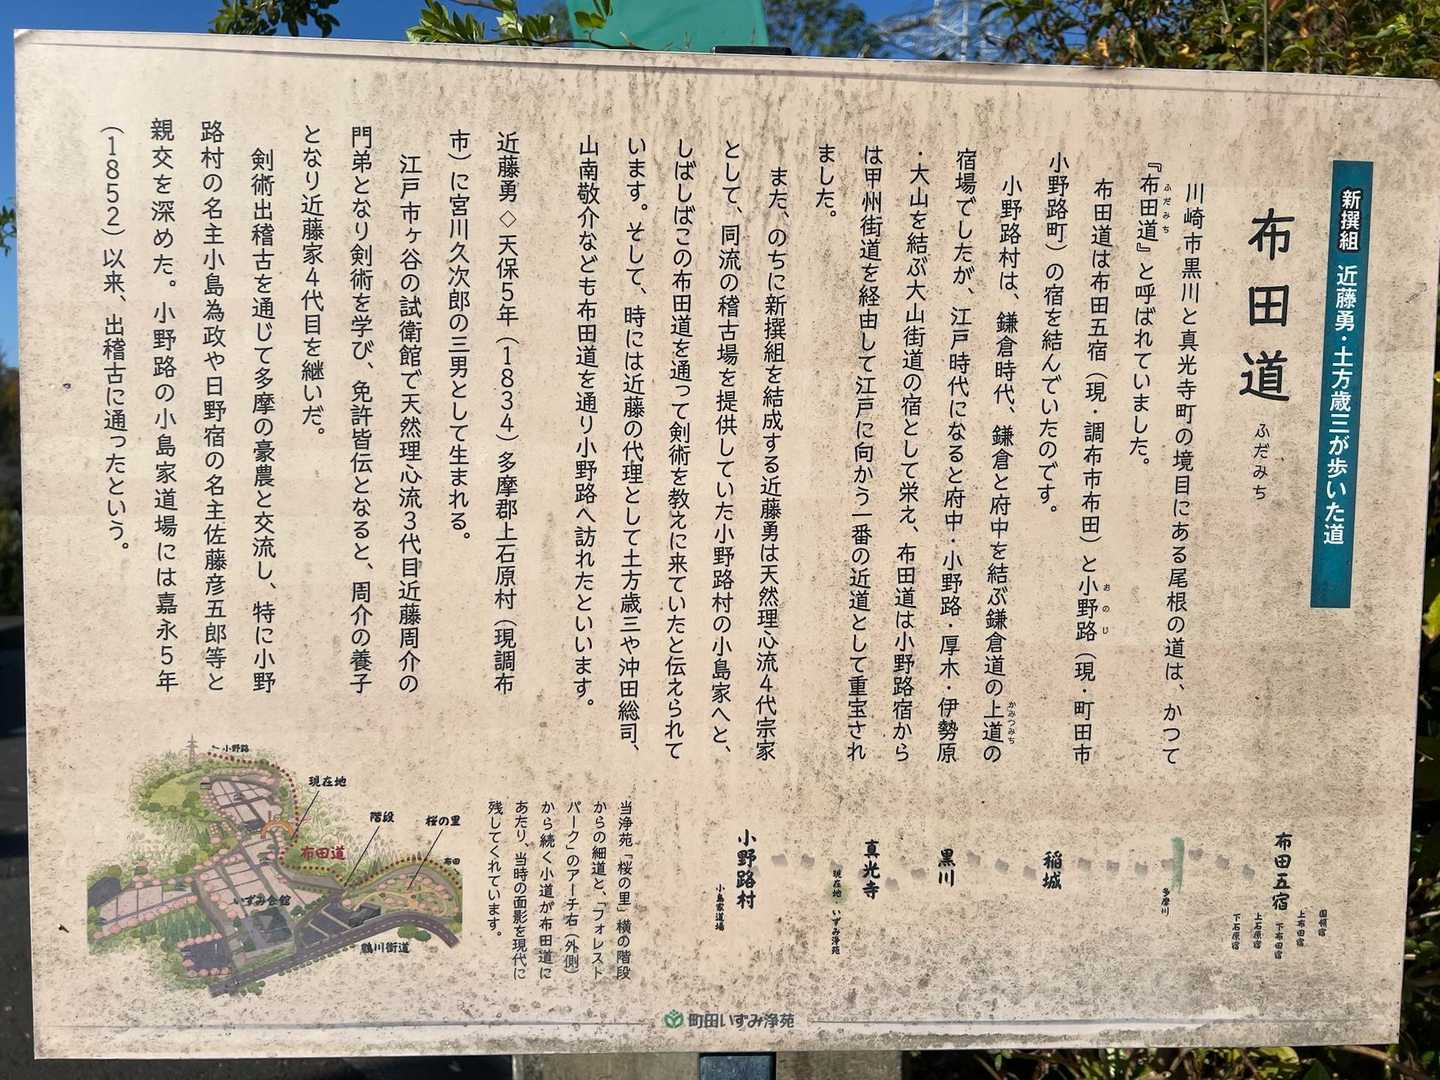 新撰組 近藤勇・土方歳三が歩いた道
布田道 ふだみち
川崎市黒川と真光寺町の境目にある尾根の道は、かつて
『布田道』と呼ばれていました。
ふだみち
布田道は布田五宿（現・調布市布田）と小野路（現・町田市
おのじ
小野路町）の宿を結んでいたのです。
小野路村は、鎌倉時代、鎌倉と府中を結ぶ鎌倉道の上道の
かみつみち
宿場でしたが、江戸時代になると府中・小野路・厚木・伊勢原
・大山を結ぶ大山街道の宿として栄え、布田道は小野路宿から
は甲州街道を経由して江戸に向かう一番の近道として重宝され
ました。
また、のちに新撰組を結成する近藤勇は天然理心流４代宗家
として、同流の稽古場を提供していた小野路村の小島家へと、
しばしばこの布田道を通って剣術を教えに来ていたと伝えられて
います。そして、時には近藤の代理として土方歳三や沖田総司、
山南敬介なども布田道を通り小野路へ訪れたといいます。
近藤勇 ◇天保５年（１８３４）多摩郡上石原村（現調布
市）に宮川久次郎の三男として生まれる。
江戸市ヶ谷の試衛館で天然理心流３代目近藤周介の
門弟となり剣術を学び、免許皆伝となると、周介の養子
となり近藤家４代目を継いだ。
剣術出稽古を通じて多摩の豪農と交流し、特に小野
路村の名主小島為政や日野宿の名主佐藤彦五郎等と
親交を深めた。小野路の小島家道場には嘉永５年
（１８５２）以来、出稽古に通ったという。
布田五宿
国領宿
上布田宿
下布田宿
上石原宿
下石原宿
多摩川
稲城
黒川
真光寺
現在地・いずみ浄苑
小野路村
小島家道場
当浄苑「桜の里」横の階段
からの細道と、「フォレスト
パーク」のアーチ右（外側）
から続く小道が布田道に
あたり、当時の面影を現代に
残してくれています。
小野路
現在地
階段
桜の里
布田道
布田
いずみ会館
鶴川街道
町田いずみ浄苑